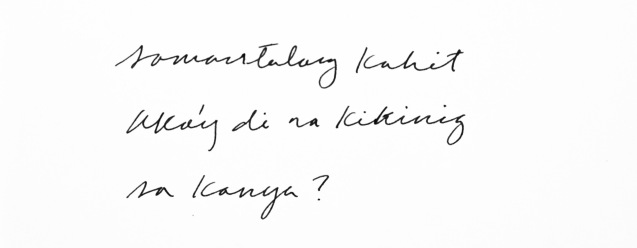 samantalang kahit
ako'y di na kikinig
sa kanya?